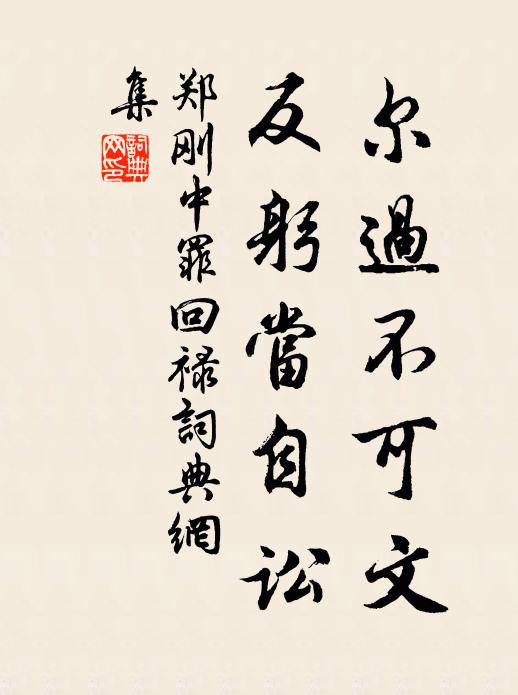 尔過不可文
反躬當自訟
郑刚中罪回禄詞典網
集
詞典
网印